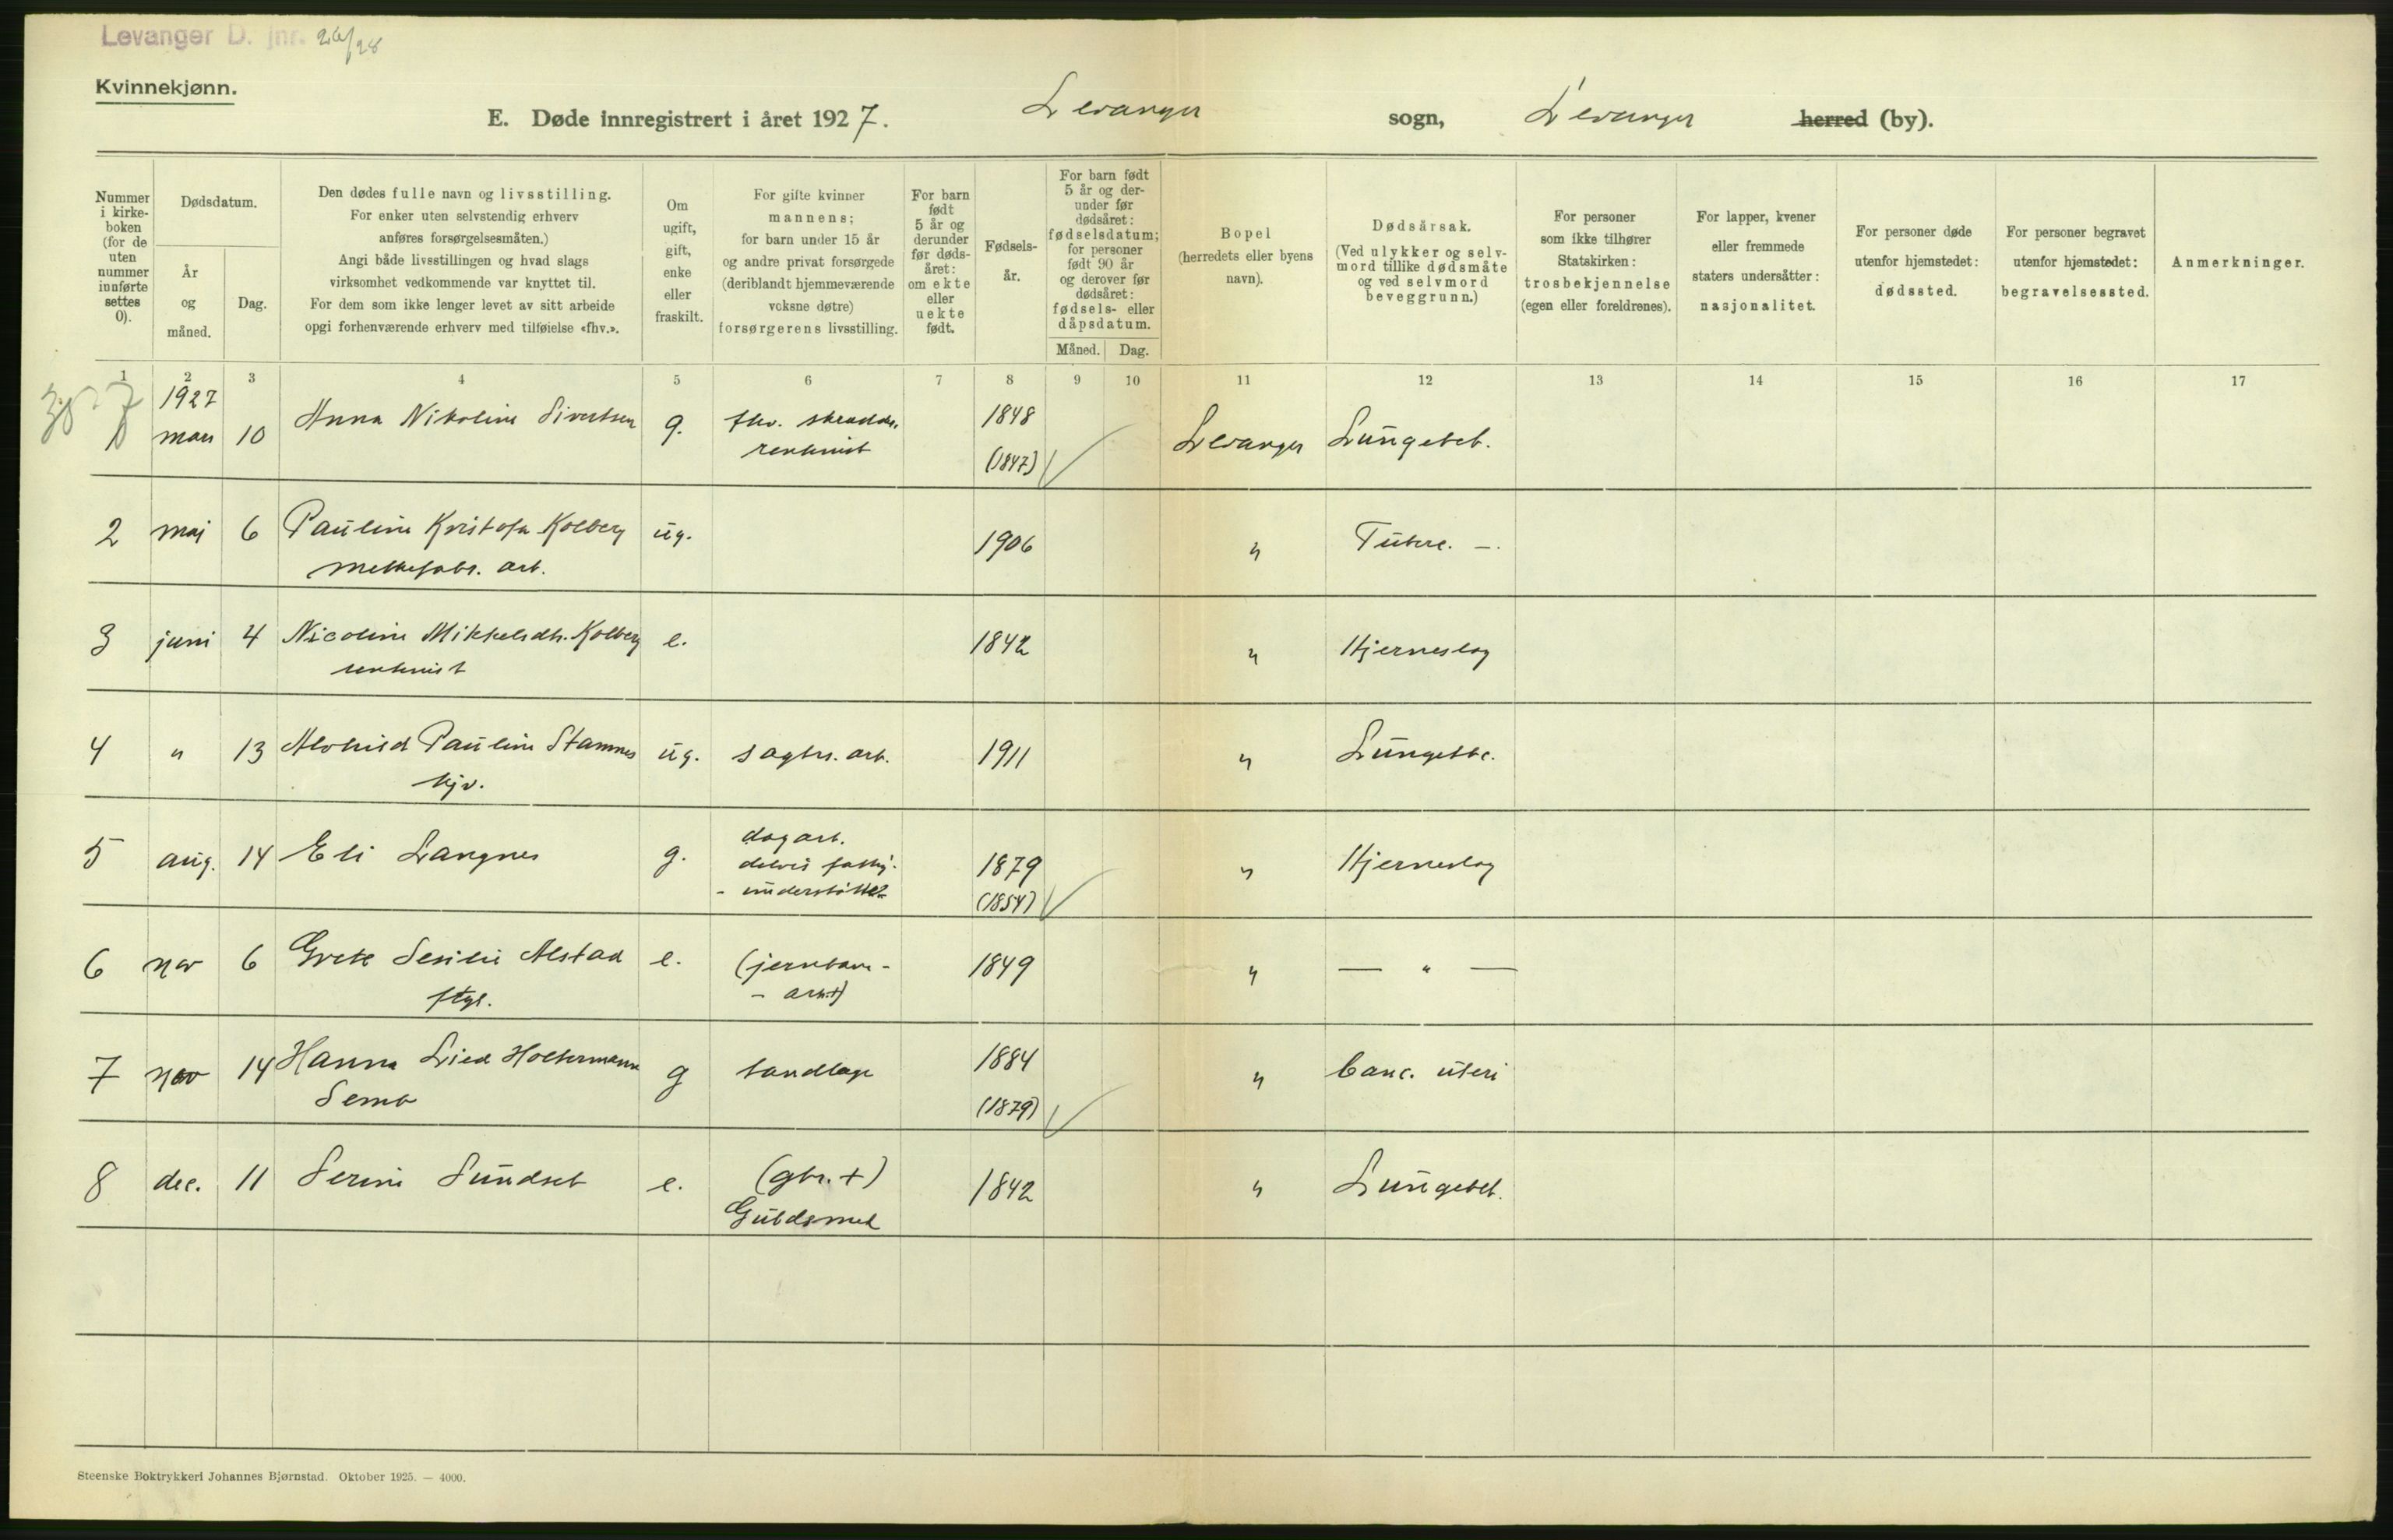 Levanger D. jnr. 26/28
Kvinnekjønn.
E. Døde innregistrert i året 1927. Levanger sogn, Levanger herred (by).
Nummer i kirke-boken (for de uten nummer innførte settes 0).
Dødsdatum.
År og måned.
Dag.
Den dødes fulle navn og livsstilling.
For enker uten selvstendig erhverv
anføres forsørgelsesmåten.)
Angi både livsstillingen og hvad slags
virksomhet vedkommende var knyttet til.
For dem som ikke lenger levet av sitt arbeide
opgi forhenværende erhverv med tilføielse «fhv.».
Om ugift, gift, enke eller fraskilt.
For gifte kvinner
mannens;
for barn under 15 år
og andre privat forsørgede
(deriblandt hjemmeværende
voksne døtre)
forsørgerens livsstilling.
For barn født 5 år og derunder før døds-året: om ekte eller uekte født.
Fødsels-år.
For barn født 5 år og der-under før dødsåret: fødselsdatum; for personer født 90 år og derover før dødsåret: fødsels- eller dåpsdatum.
Måned. Dag.
Bopel
(herredets eller byens
navn).
Dødsårsak.
(Ved ulykker og selv-
mord tillike dødsmåte
og ved selvmord
beveggrunn.)
For personer
som ikke tilhører
Statskirken:
trosbekjennelse
(egen eller foreldrenes).
For lapper, kvener
eller fremmede
staters undersåtter:
nasjonalitet.
For personer døde
utenfor hjemstedet:
dødssted.
For personer begravet
utenfor hjemstedet:
begravelsessted.
Anmerkninger.
1 2 3 4 5 6 7 8 9 10 11 12 13 14 15 16 17
1927
1 mars 10 Anna Nikoline Sivertsen g. fhv. skredder, 1848 Levanger Lungebet.
rentenist (1847)
2 mai 6 Pauline Kristofa Kolberg ug. 1906 " Tuberc. —.
melkefabr. arb.
3 juni 4 Nicoline Mikkelsdtr. Kolberg e. 1842 " Hjerneslag
rentenist
4 " 13 Alvhild Pauline Stamnes ug. sagbr. arb. 1911 " Lungetbc.
hjv.
5 aug. 14 Eli Langnes g. dagarb. 1879 " Hjerneslag
delvis fattig-
- understøttet (1854)
6 nov 6 Grete Sesilie Alstad e. (jernbane- 1849 " — " —
- arb.†)
7 nov 14 Hanna Lied Holtermann g tandlæge 1884 " Canc. uteri
Semb (1879)
8 dec. 11 Serine Sundset e. (gbr. †) 1842 " Lungebet.
Steenske Boktrykkeri Johannes Bjørnstad. Oktober 1925. — 4000.